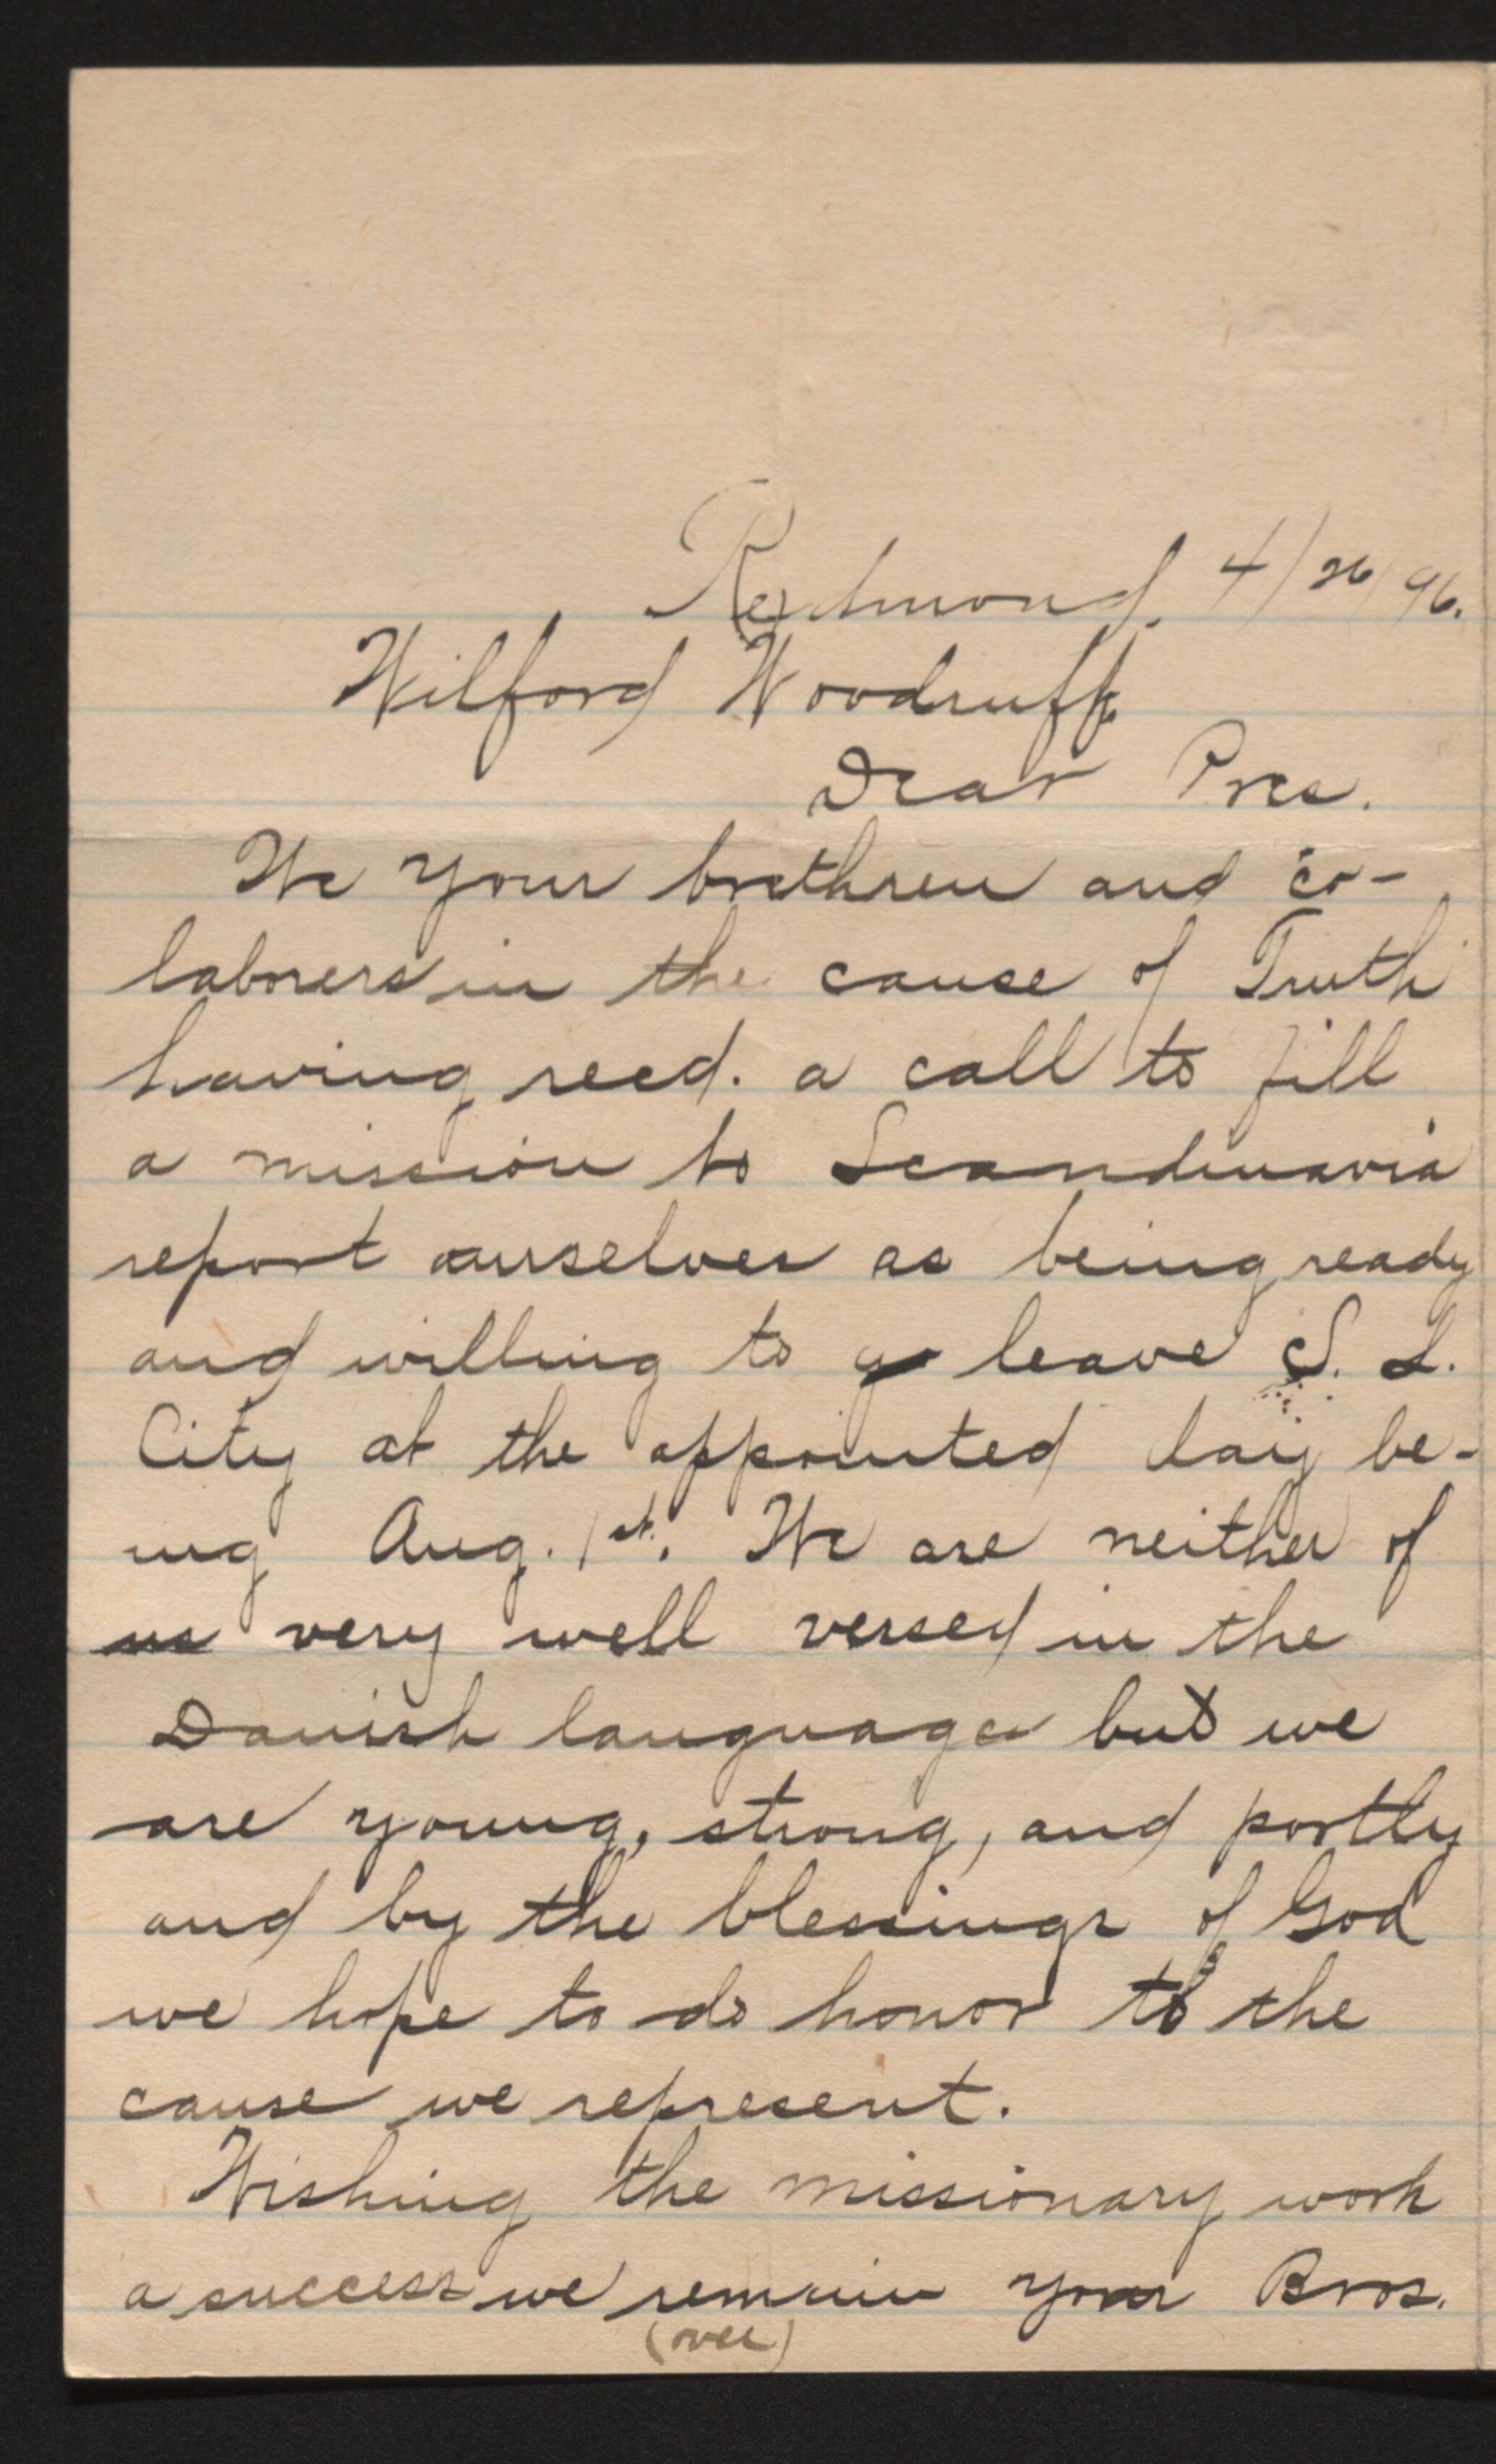 Redmond. 4/26/96.
Wilford Woodruff
Dear Pres.
We your brethren and co-
laborers in the cause of Truth
having recd. a call to fill
a mission to Scandinavia
report ourselves as being ready
and willing to go leave S. L.
City at the appointed day be-
ing Aug. 1st. We are neither of
us very well versed in the
Danish language but we
are young, strong, and portly
and by the blessings of God
we hope to do honor to the
cause we represent.
Wishing the missionary work
a success we remain your Bros.
(over)